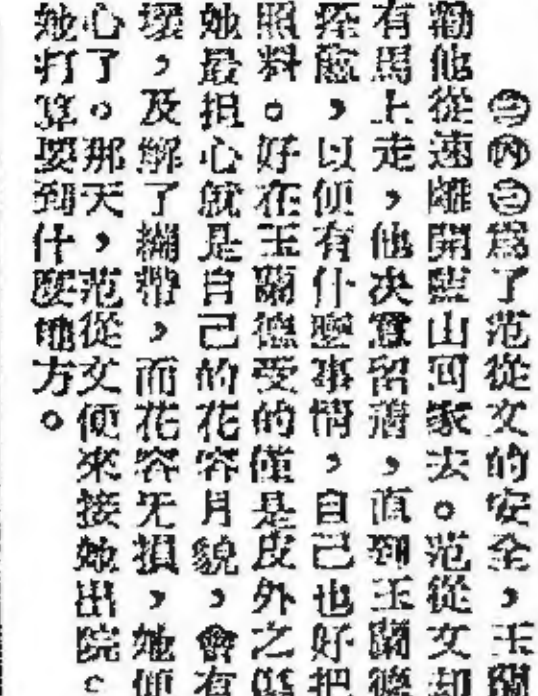 爲了范從文的安全,玉蘭
勸他從速離開藍山回家去。范從文却
有馬上走,他决意留着,直到玉蘭德
痊癒,以便有什麼事情,自己也好把
照料。好在玉蘭德受的僅是皮外之傷
她最担心就是自己的花容月貌,會有
壞,及解了綳帶,而花容无損,她便
心了。那天,范從文便來接她出院。
她打算要到什麼地方。